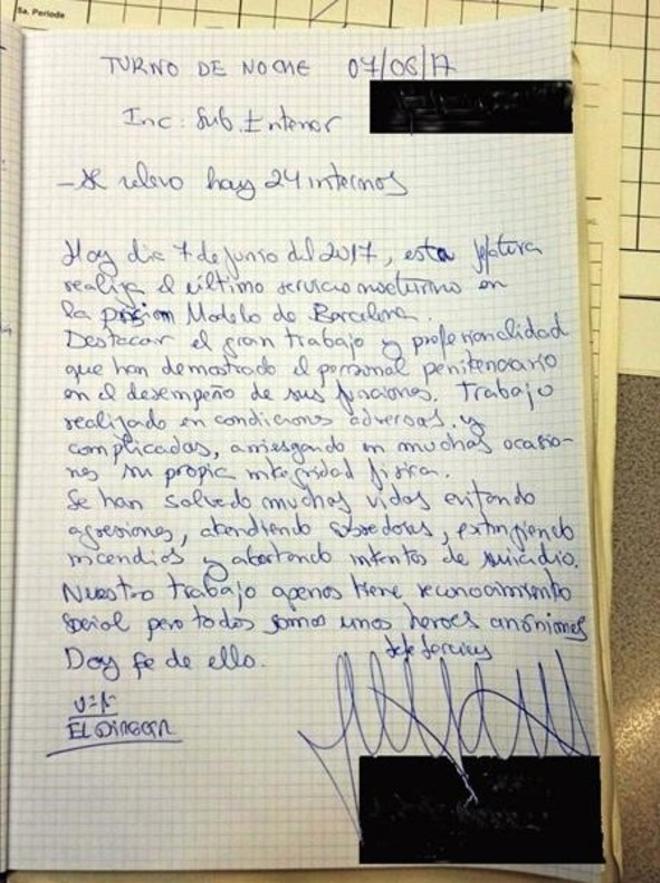 5a. Periode
TURNO DE NOCHE 07/06/17
Inc: Sub. Interior
- Se relevo hay 24 internos
Hoy dia 7 de junio del 2017, esta jefatura
realiza el último servicio nocturno en
la prision Modelo de Barcelona.
Destacar el gran trabajo y profesionalidad
que han demostrado el personal penitenciario
en el desempeño de sus funciones. Trabajo
realizado en condiciones adversas y
complicadas, arriesgando en muchas ocasio-
nes su propia integridad fisica.
Se han salvado muchas vidas evitando
agresiones, atendiendo sobredosis, extinguiendo
incendios y abortando intentos de suicidio.
Nuestro trabajo apenas tiene reconocimiento
social pero todos somos unos heroes anónimos
Doy fe de ello.
Jefe Servicios
EL DIRECTOR